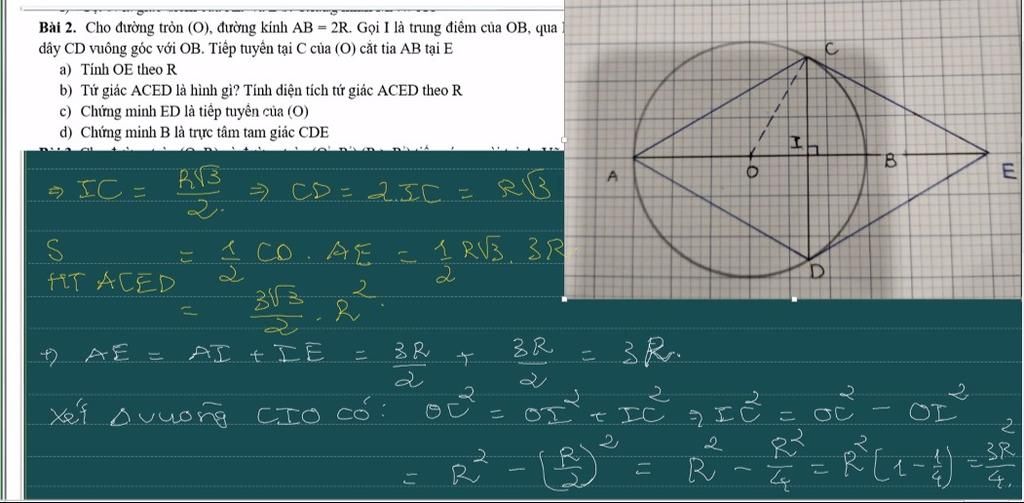 Bài 2. Cho đường tròn (O), đường kính AB = 2R. Gọi I là trung điểm của OB, qua
dây CD vuông góc với OB. Tiếp tuyến tại C của (O) cắt tia AB tại E
a) Tính OE theo R
b) Tứ giác ACED là hình gì? Tính diện tích tứ giác ACED theo R
c) Chứng minh ED là tiếp tuyến của (O)
d) Chứng minh B là trực tâm tam giác CDE
C
I
A
O
B
E
D
⇒ IC = R√3/2 ⇒ CD = 2.IC = R√3
S HT ACED = 1/2 CD . AE = 1/2 R√3 . 3R
= 3√3/2 . R²
+) AE = AI + IE = 3R/2 + 3R/2 = 3R.
Xét Δ vuông CIO có: OC² = OI² + IC² ⇒ IC² = OC² - OI²
= R² - (R/2)² = R² - R²/4 = R²(1 - 1/4) = 3R²/4.